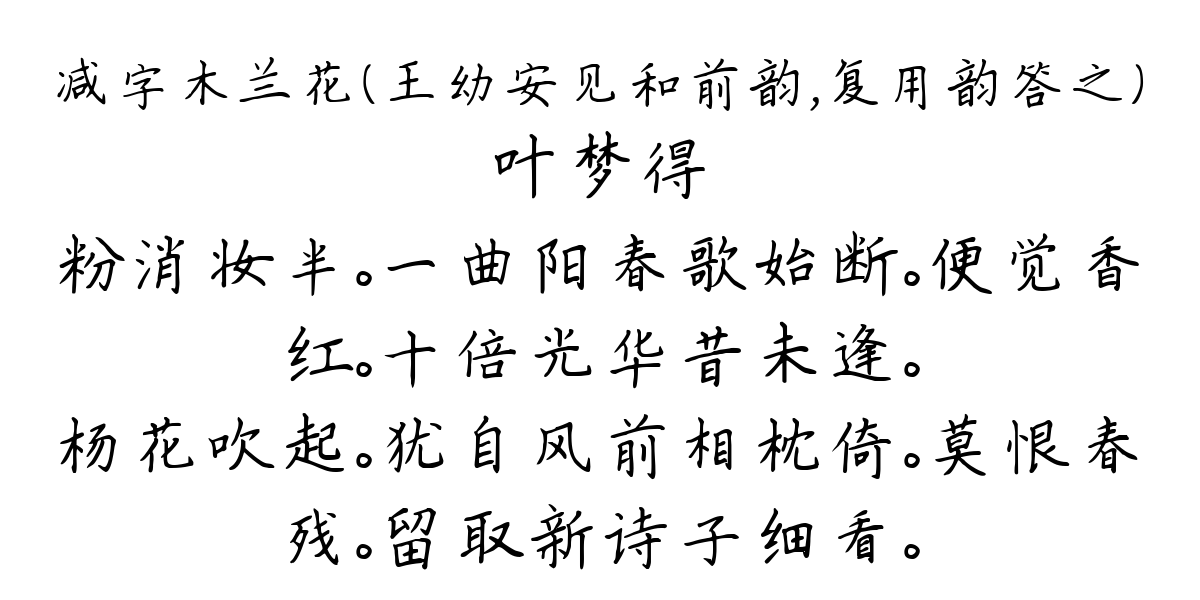 减字木兰花(王幼安见和前韵,复用韵答之)
叶梦得
粉消妆半。一曲阳春歌始断。便觉香
红。十倍光华昔未逢。
杨花吹起。犹自风前相枕倚。莫恨春
残。留取新诗子细看。